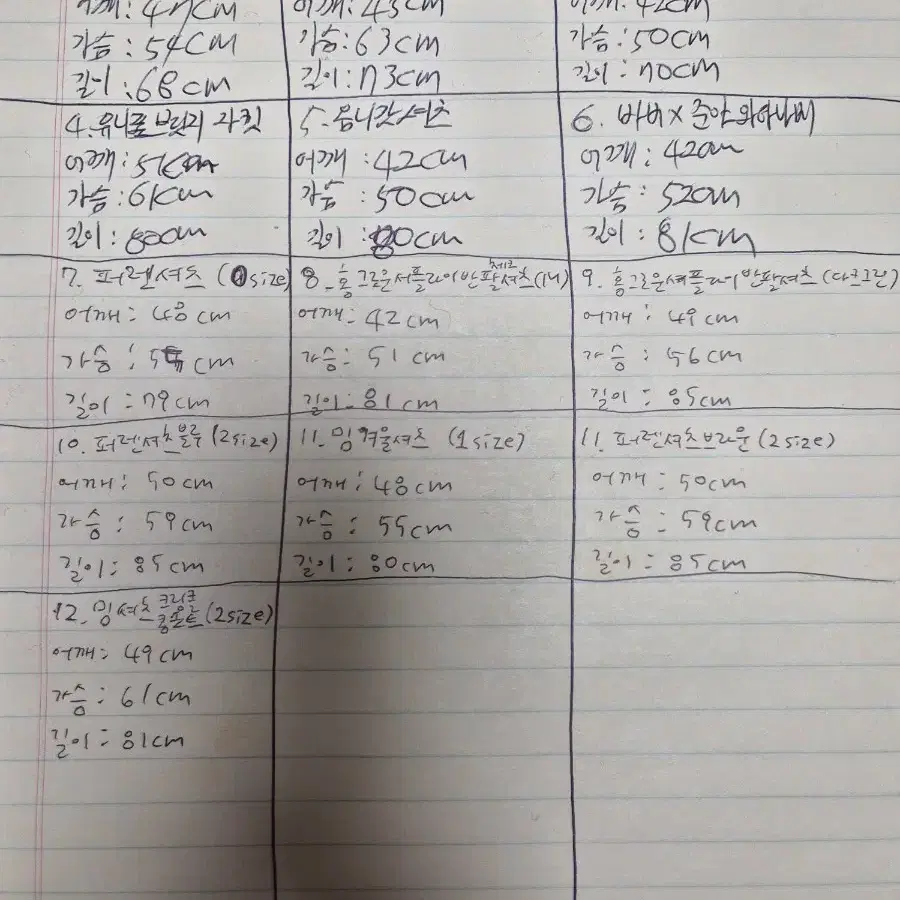 어깨: 47cm
가슴: 54cm
길이: 68cm
어깨: 45cm
가슴: 63cm
길이: 73cm
어깨: 42cm
가슴: 50cm
길이: 70cm
4. 유니폼브릿지 자켓
어깨: 51cm
가슴: 61cm
길이: 80cm
5. 옴니갓셔츠
어깨: 42cm
가슴: 50cm
길이: 80cm
6. 바버 x 준야 와타나베
어깨: 42cm
가슴: 52cm
길이: 81cm
7. 퍼렌셔츠 (0size)
어깨: 48cm
가슴: cm
길이: 79cm
8. 홍그로운서플라이반팔셔츠
어깨: 42cm
가슴: 51cm
길이: 81cm
9. 홍그로운서플라이반팔셔츠 (다크그린)
어깨: 49cm
가슴: 56cm
길이: 85cm
10. 퍼렌셔츠블루 (2size)
어깨: 50cm
가슴: 59cm
길이: 85cm
11. 밍겨울셔츠 (1size)
어깨: 48cm
가슴: 55cm
길이: 80cm
11. 퍼렌셔츠브라운 (2size)
어깨: 50cm
가슴: 59cm
길이: 85cm
12. 밍셔츠 (2size)
어깨: 49cm
가슴: 61cm
길이: 81cm